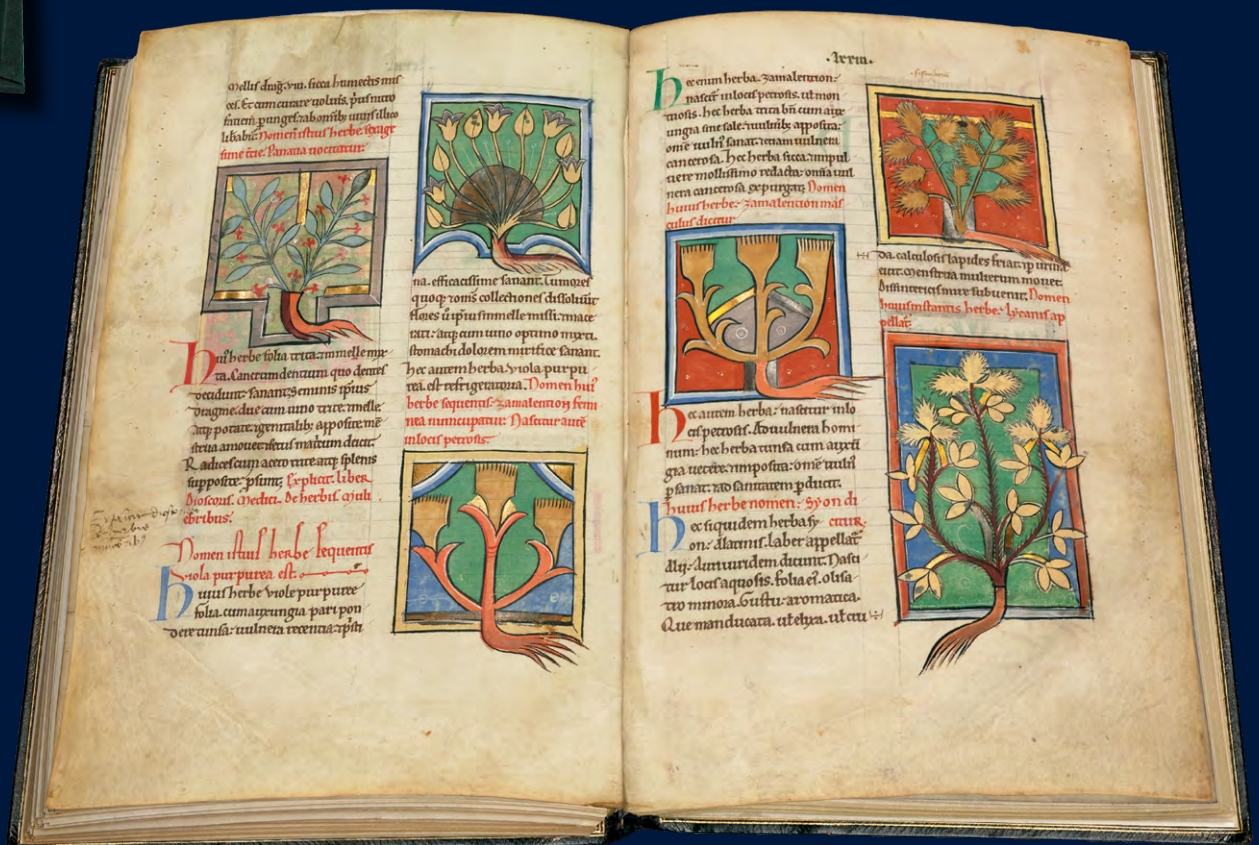 mellis dragͥ. viii. sicca humectis mis
ces. Et cum curare uolu͛is. p͛us nitro
libabis. Nomen istius herbe. sexage
sime t͛cie. Panaria uocitatur.
huiꝰ herbe folia trita. ⁊ in melle mix
ta. Cancrum dentium quo dentes
decidunt sanant. Seminis ip̄ius
dragme due cum uino trite. ⁊ melle
atq; potate. ⁊ genitalib; apposite. mē
strua amouet. fetus mortuum ducit.
Radices cum aceto trite. atq; splenis
supposite. p̄sunt. Explicit. liber
Dioscoris. Medici. De herbis. Muli
ebribus.
Nomen istius herbe sequentis
viola purpurea est.
huius herbe viole purpuree
folia. cum axungia pari pon
dere tunsa. uulnera recentia.
na. efficacissime sanant. Tumores
quoq; ⁊ om̄s collectiones dissoluūt
flores
rati. atq; cum uino optimo mixti.
stomachi dolorem mirifice sanant.
hec autem herba. viola purpu
rea. est refrigeratiua. Nomen huiꝰ
herbe sequentis. zamalention femi
nea nuncupatur. Nascitur autē
in locis petrosis.
.lxxiii.
hec enim herba. zamalention.
nascit͛ in locis petrosis. ul͛ mon
tuosis. hec herba trita bn̄ cum axu
ngia sine sale. ⁊ uuln͛ib; apposita.
omē uuln͛ sanat. etiam uulnera
cancerosa. hec herba sicca. ⁊ in pul
uere mollissimo redacta. omīa uul
nera cancerosa expurgat. Nomen
huius herbe. zamalention mas
culus dicitur.
hec autem herba. nascitur in lo
cis petrosis. Ad uulnera homi
num. hec herba tunsa cum axun
gia uetere. ⁊ imposita. omē uuln͛
p̄sanat. ⁊ ad sanitatem p̱ducit.
huius herbe nomen. syon di
hec siquidem herba sy citur.
on. a latinis. laber appellat͛
Alij. Aut uiridem dicunt. Nasci
tur locis aquosis. folia eī. olisa
tro minora. Gustu. aromatica.
Que manducata. ul͛ elixa. ul͛ cru
da. calculosis lapides friat. ⁊ p͛ urinā
eicit. Menstrua mulierum mouet.
Dissintericis mire subuenit. Nomen
huius instantis herbe. lycanis ap
pellat͛.